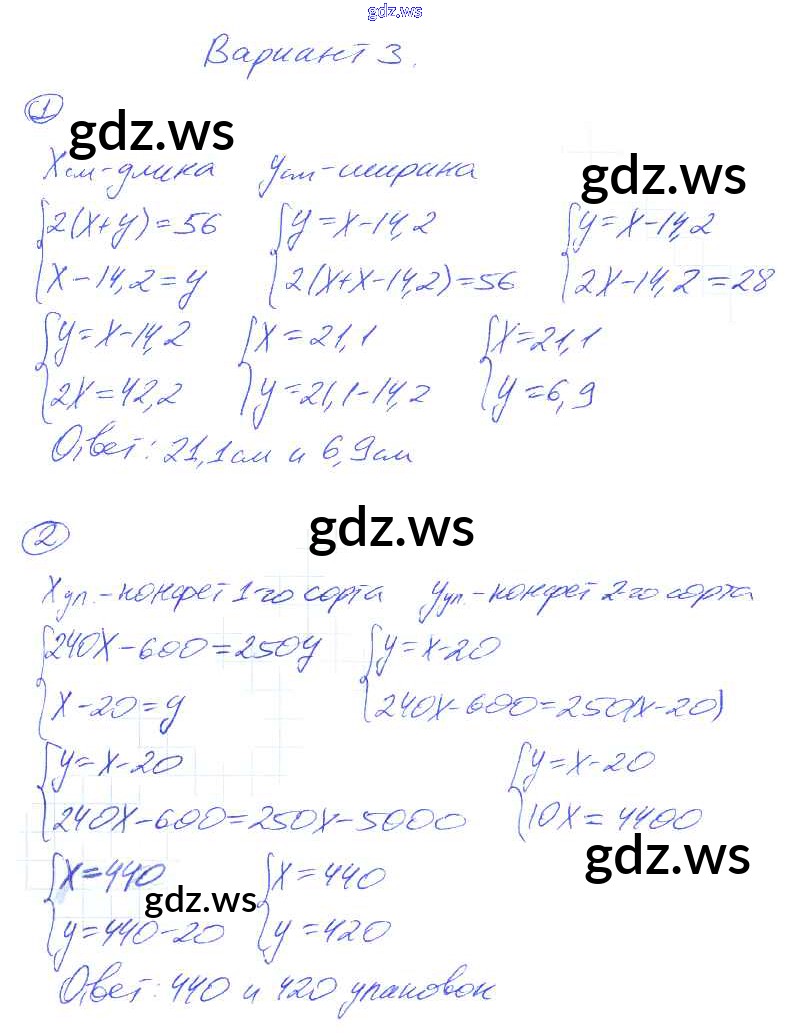 gdz.ws
Вариант 3.
1
gdz.ws
X см - длина    y см - ширина
gdz.ws
{2(X+y)=56    {y=X-14,2    {y=X-14,2
{X-14,2=y    {2(X+X-14,2)=56    {2X-14,2=28
{y=X-14,2    {X=21,1    {X=21,1
{2X=42,2    {y=21,1-14,2    {y=6,9
Ответ: 21,1см и 6,9см
gdz.ws
2
X уп. - конфет 1-го сорта    y уп. - конфет 2-го сорта
{240X-600=250y    {y=X-20
{X-20=y    {240X-600=250(X-20)
{y=X-20    {y=X-20
{240X-600=250X-5000    {10X=4400
gdz.ws
{X=440    {X=440
gdz.ws
{y=440-20    {y=420
Ответ: 440 и 420 упаковок